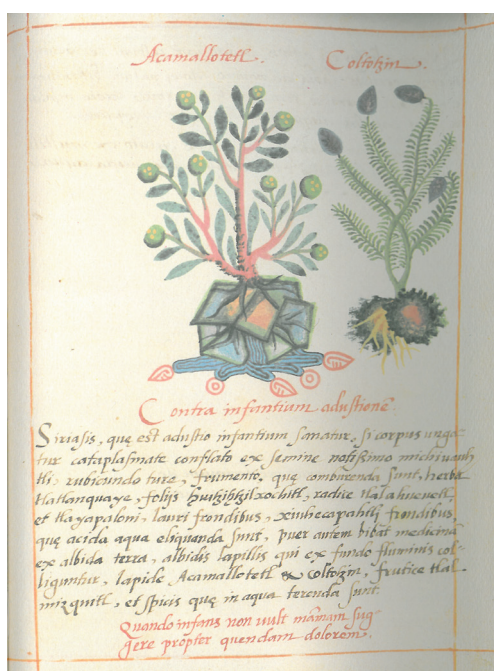 Acamallotetl. Coltotzin.
Contra infantium adustionē
Siriasis, quę est adustio infantium sanatur, si corpus unga-
tur cataplasmate conflato ex semine notissimo michivauh
tli, rubicundo ture, frumento, quę comburenda sunt, herba
tlatlanquaye, folijs huitzihtzilxochitl, radice tlalahuevetl,
et tlayapaloni, lauri frondibus, xiuhecapahtlj frondibus,
quę acida aqua eliquenda sunt, puer autem bibat medicinā
ex albida terra, albidis lapillis qui ex fundo fluminis col-
liguntur, lapide, Acamallotetl & Coltotzin, frutice tlal-
mizquitl, et spicis quę in aqua terenda sunt.
Quando infans non uult mamam sug
gere propter quendam dolorem.